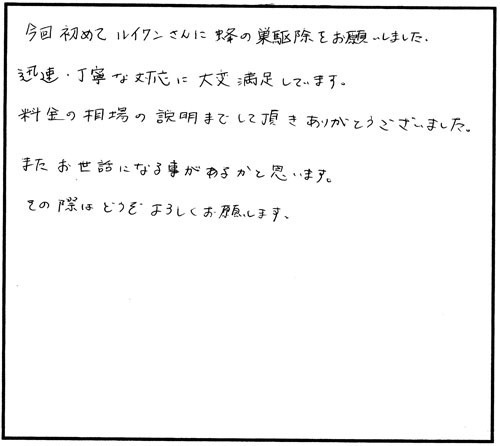 今回初めてルイワンさんに蜂の巣駆除をお願いしました.
迅速・丁寧な対応に大変満足しています。
料金の相場の説明までして頂きありがとうございました。
またお世話になる事があるかと思います。
その際はどうぞよろしくお願します.